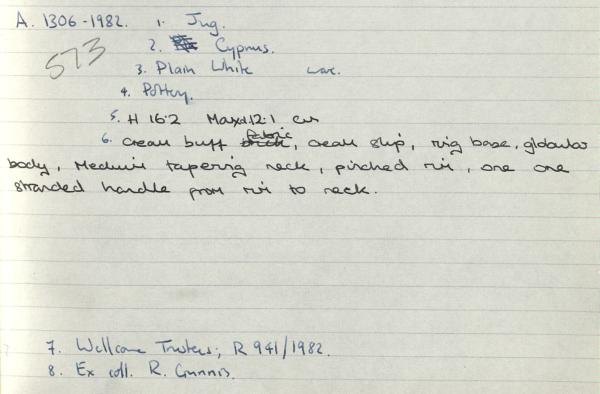 A. 1306-1982. 1. Jug.
573
2. Cyprus.
3. Plain White ware.
4. Pottery.
5. H 16.2 Maxd 12.1 cm
6. cream buff fabric, cream slip, ring base, globular
body, medium tapering neck, pinched rim, one one
stranded handle from rim to neck.
7. Wellcome Trustees; R 941/1982.
8. Ex coll. R. Gunnis.